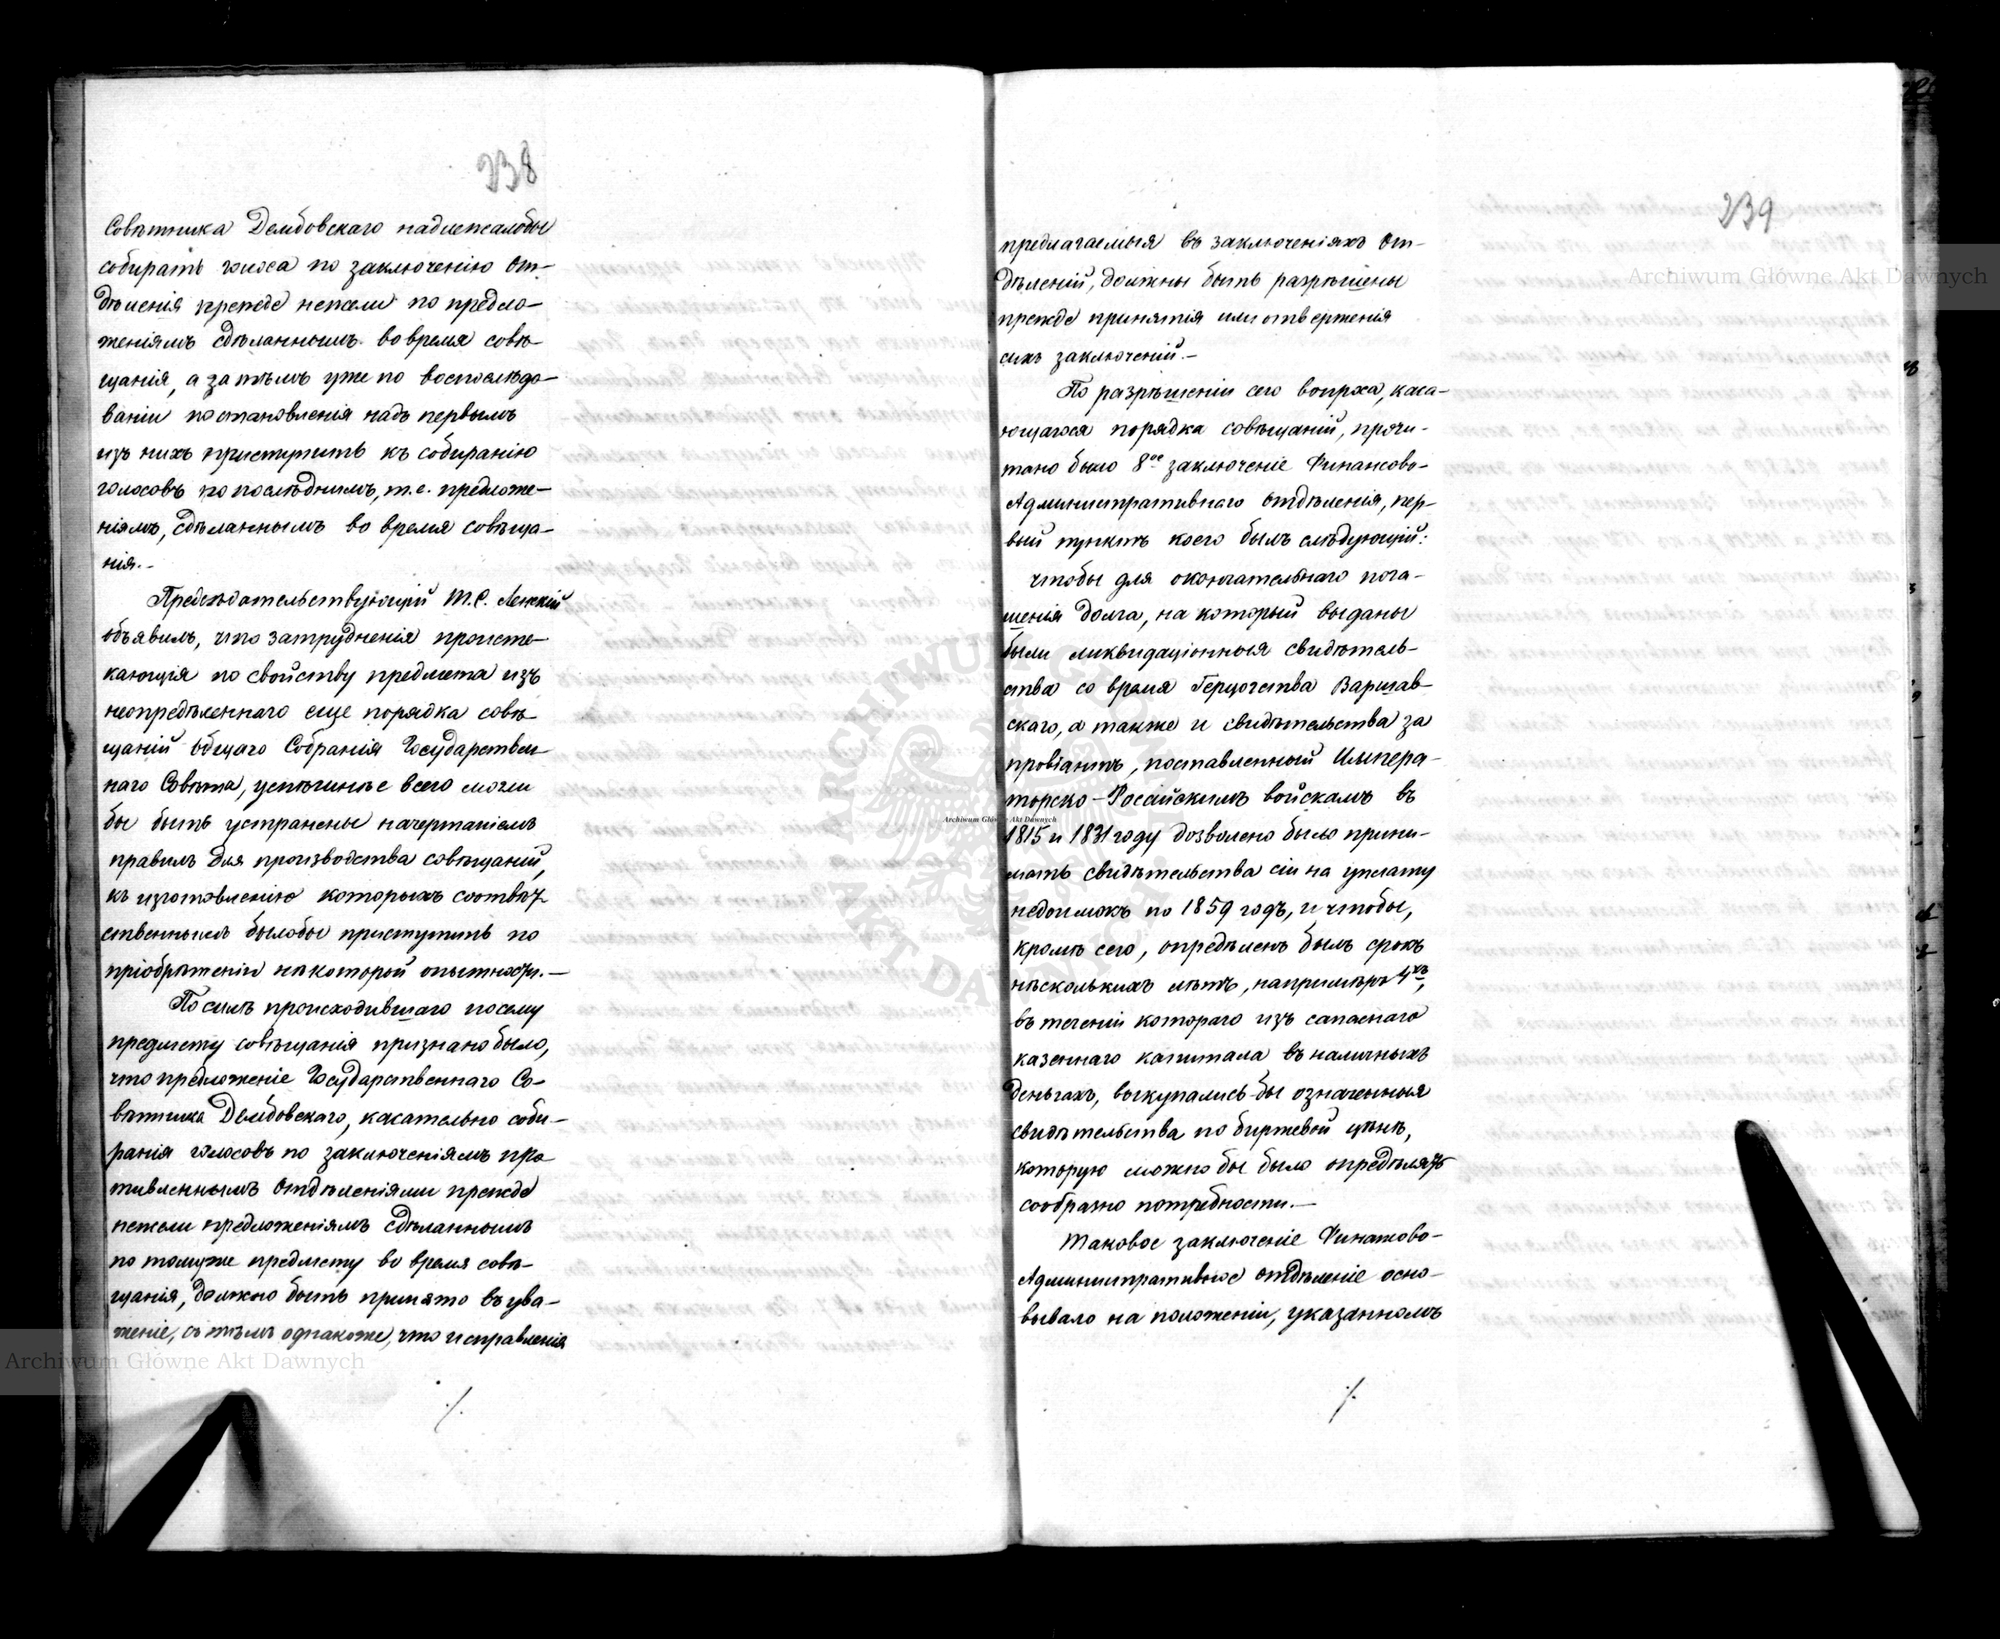 238
Совѣтника Дембовскаго надлежалобы
собирать голоса по заключенію От-
дѣленія прежде нежели по предло-
женіямъ сдѣланнымъ во время совѣ-
щанія, а затѣмъ уже по воспослѣдо-
ваніи постановленія надъ первымъ
изъ нихъ приступить къ собиранію
голосовъ по послѣднимъ, т.е. предложе-
ніямъ, сдѣланнымъ во время совѣща-
нія.-
Предсѣдательствующій Т.С. Ленскій
объявилъ, что затрудненія происте-
кающія по свойству предмета изъ
неопредѣленнаго еще порядка совѣ-
щаній Общаго Собранія Государствен-
наго Совѣта, успѣшнѣе всего могли
бы быть устранены начертаніемъ
правилъ для производства совѣщаній,
къ изготовленію которыхъ соотвѣт-
ственнымъ былобы приступить по
пріобрѣтеніи нѣкоторой опытности.—
Посилѣ происходившаго посему
предмету совѣщанія признано было,
что предложеніе Государственнаго Со-
вѣтника Дембовскаго, касательно соби-
ранія голосовъ по заключеніямъ пред-
тавленнымъ Отдѣленіями прежде
нежели предложеніямъ сдѣланнымъ
по томуже предмету во время совѣ-
щанія, должно быть принято въ ува-
женіе, съ тѣмъ однакоже, что исправленія
./.
239
предлагаемыя въ заключеніяхъ От-
дѣленій, должны быть разрѣшены
прежде принятія или отверженія
сихъ заключеній.-
По разрѣшеніи сего вопроса, каса-
ющагося порядка совѣщаній, прочи-
тано было 8ое заключеніе Финансово-
Административнаго Отдѣленія, пер-
вый пунктъ коего былъ слѣдующій:
чтобы для окончательнаго пога-
шенія долга, на который выданы
были ликвидаціонныя свидѣтель-
ства со время Герцогства Варшав-
скаго, а также и свидѣтельства за
провіантъ, поставленный Импера-
торско-Россійскимъ войскамъ въ
1815 и 1831 году дозволено было прини-
мать свидѣтельства сіи на уплату
недоимокъ по 1859 годъ, и чтобы,
кромѣ сего, опредѣленъ былъ срокъ
нѣсколькихъ лѣтъ, напримѣръ 4хъ,
въ теченіи котораго изъ запаснаго
казеннаго капитала въ наличныхъ
деньгахъ, выкупались-бы означенныя
свидѣтельства по биржевой цѣнѣ,
которую можно бы было опредѣлять
сообразно потребности.—
Таковое заключеніе Финансово-
Административное Отдѣленіе осно-
вывало на положеніи, указанномъ
./.
Archiwum Główne Akt Dawnych
Archiwum Główne Akt Dawnych
Archiwum Główne Akt Dawnych
ARCHIWUM GŁÓWNE AKT DAWNYCH